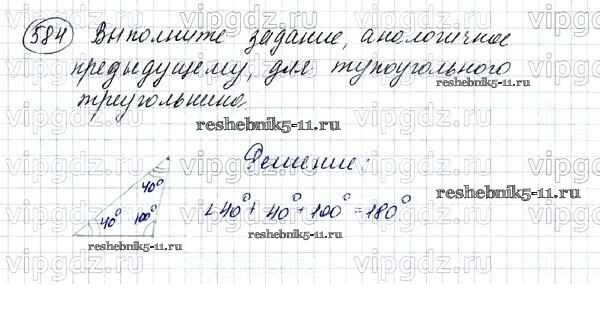 584 Выполните задание, аналогичное
предыдущему, для тупоугольного
треугольника.
reshebnik5-11.ru
Решение:
40°
40° 100°
∠40° + 40° + 100° = 180°
reshebnik5-11.ru
reshebnik5-11.ru
vipgdz.ru